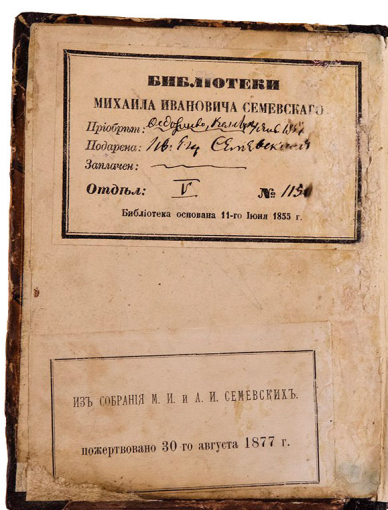 БИБЛІОТЕКИ
МИХАИЛА ИВАНОВИЧА СЕМЕВСКАГО
Пріобрѣтн:
Подарена: Семевскимъ
Заплачен:
Отдѣл: V № 1150
Библіотека основана 11-го Іюня 1855 г.
ИЗЪ СОБРАНІЯ М. И. и А. И. СЕМЕВСКИХЪ.
пожертвовано 30 го августа 1877 г.